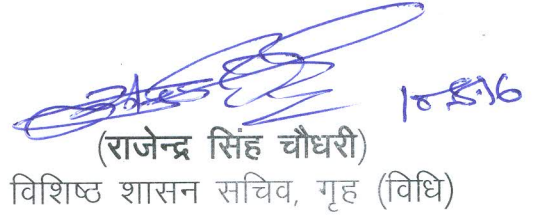 (राजेन्द्र सिंह चौधरी)
विशिष्ठ शासन सचिव, गृह (विधि)